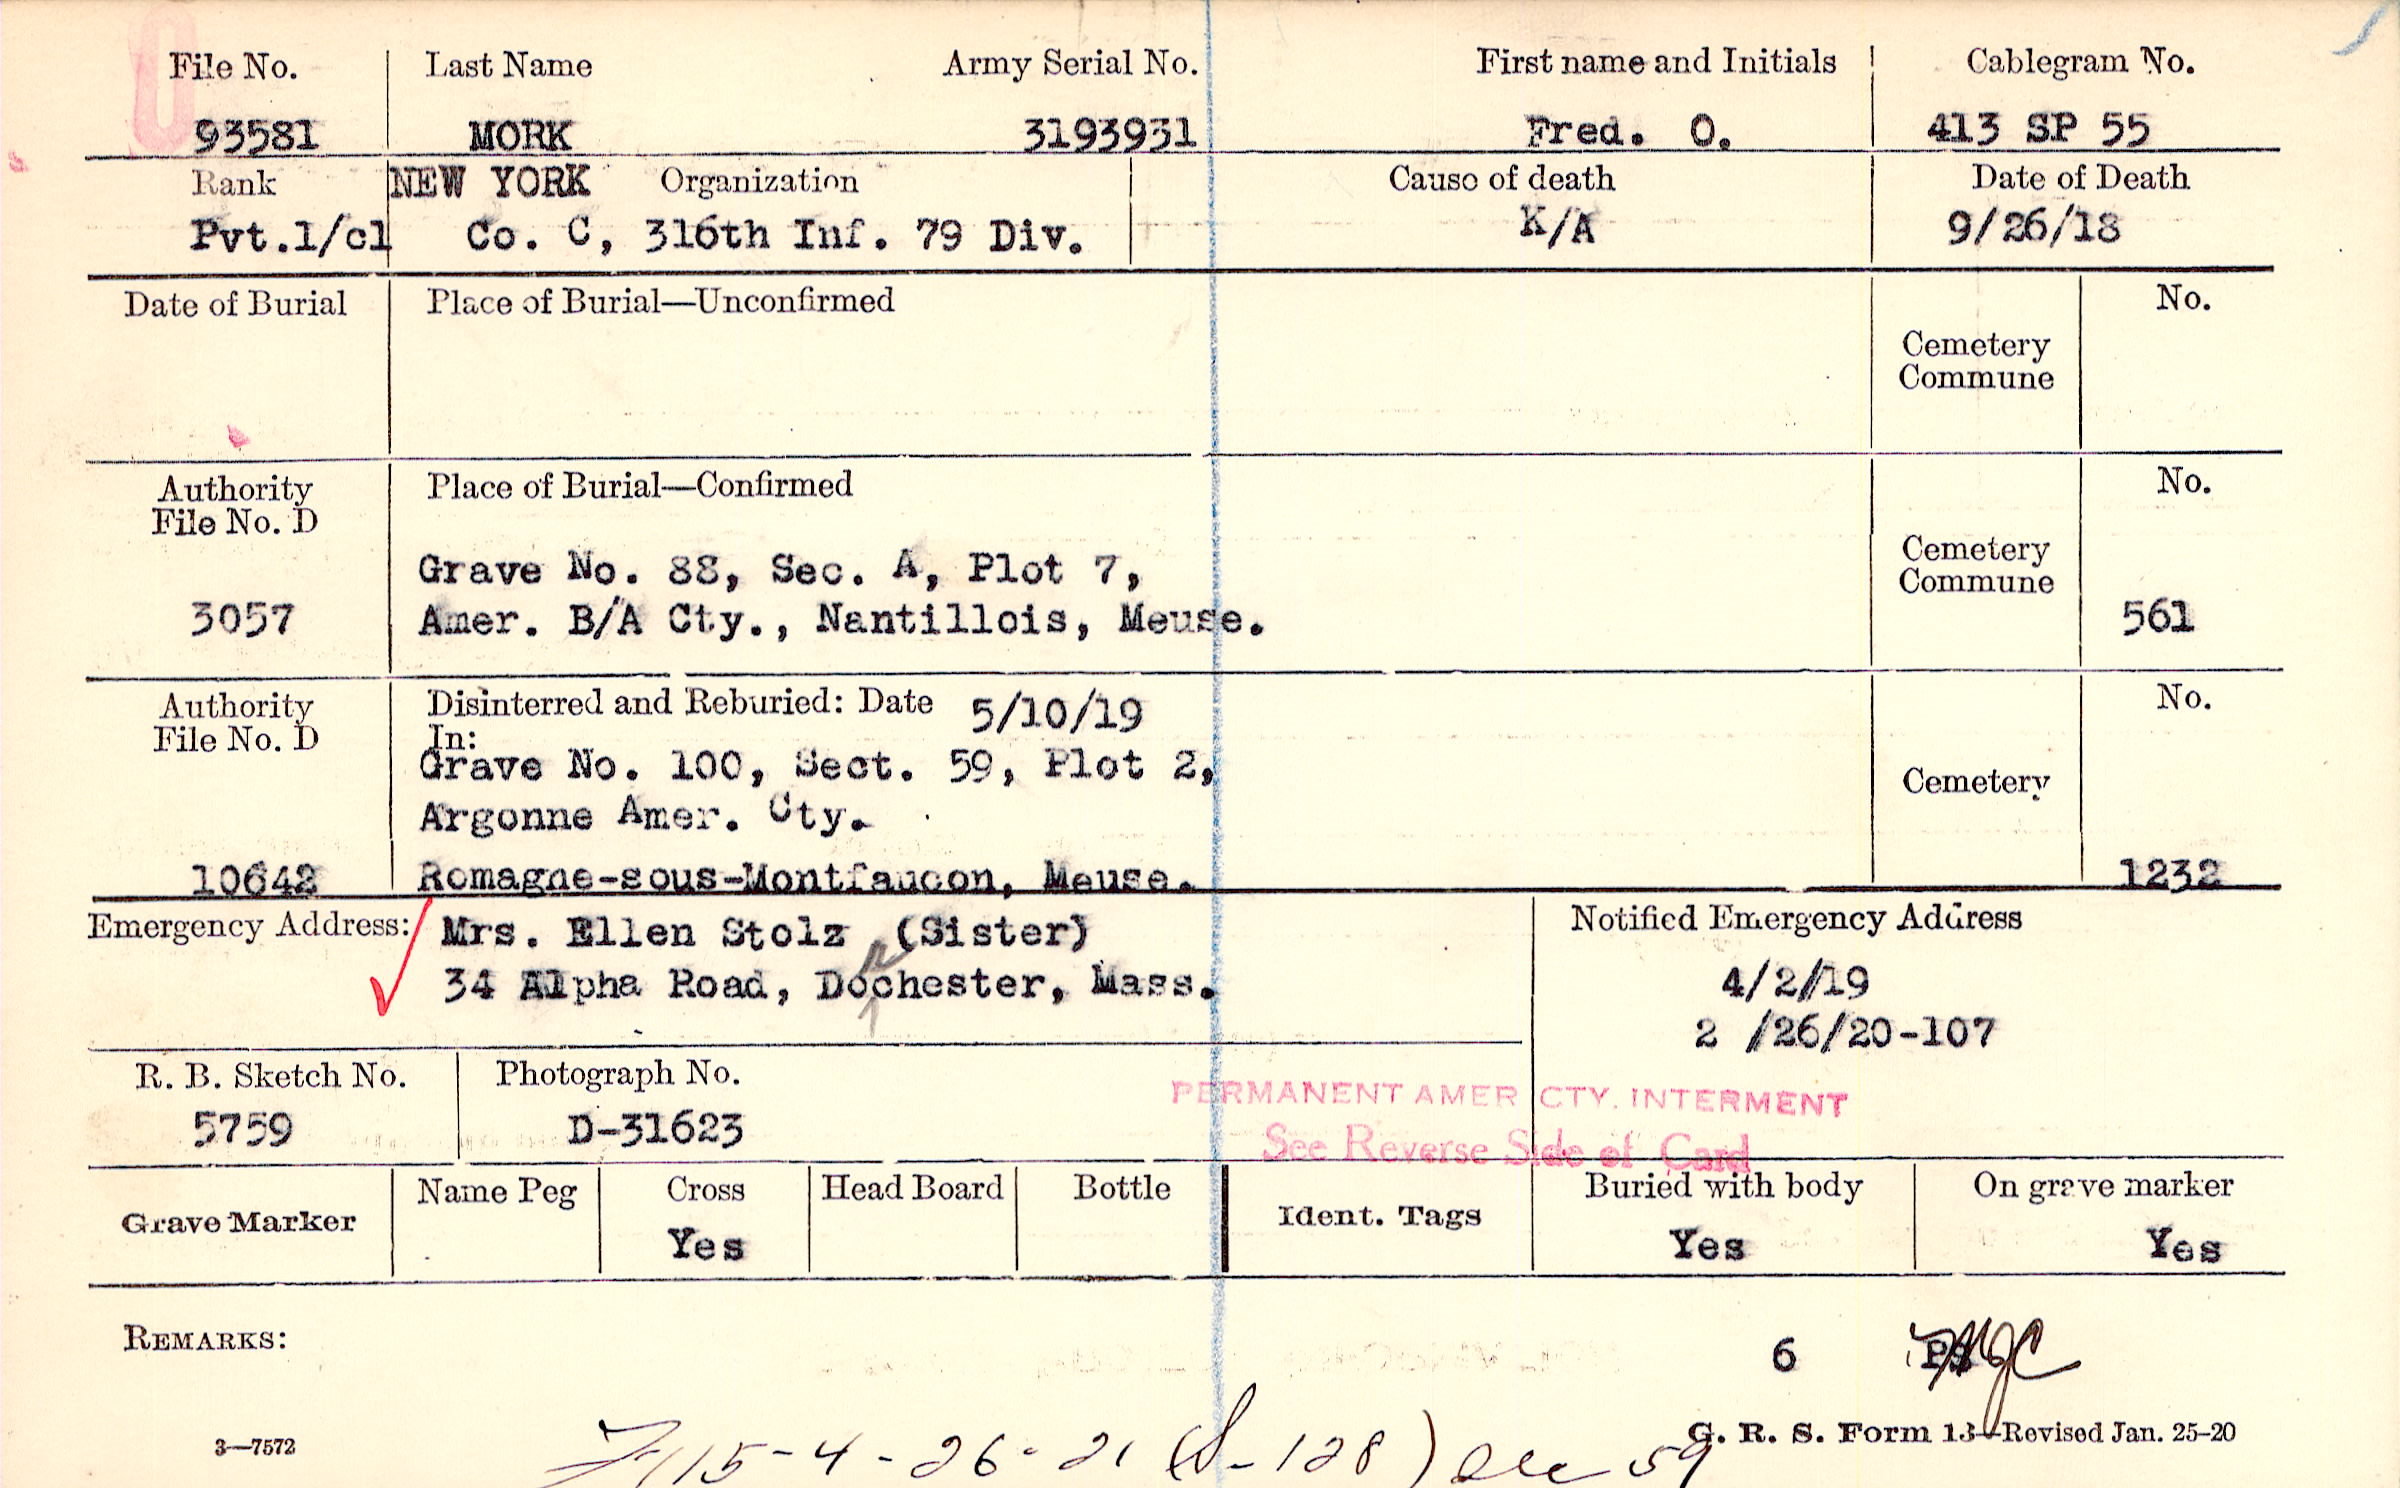 File No. Last Name Army Serial No. First name and Initials Cablegram No.
93581 MORK 3193931 Fred. O. 413 SP 55
Rank NEW YORK Organization Cause of death Date of Death
Pvt.1/cl Co. C, 316th Inf. 79 Div. K/A 9/26/18
Date of Burial Place of Burial—Unconfirmed No.
Cemetery
Commune
Authority Place of Burial—Confirmed No.
File No. D
Cemetery
Commune
Grave No. 88, Sec. A, Plot 7,
3057 Amer. B/A Cty., Nantillois, Meuse. 561
Authority Disinterred and Reburied: Date 5/10/19 No.
File No. D In:
Grave No. 100, Sect. 59, Plot 2,
Cemetery
Argonne Amer. Cty.
10642 Romagne-sous-Montfaucon, Meuse. 1232
Emergency Address: Mrs. Ellen Stolz (Sister) Notified Emergency Address
34 Alpha Road, Dochester, Mass. 4/2/19
r
2 /26/20-107
R. B. Sketch No. Photograph No.
5759 D-31623
PERMANENT AMER CTY. INTERMENT
See Reverse Side of Card
Grave Marker Name Peg Cross Head Board Bottle Ident. Tags Buried with body On grave marker
Yes Yes Yes
REMARKS:
6
3—7572 G. R. S. Form 13—Revised Jan. 25-20
115-4-26-21 128) 59